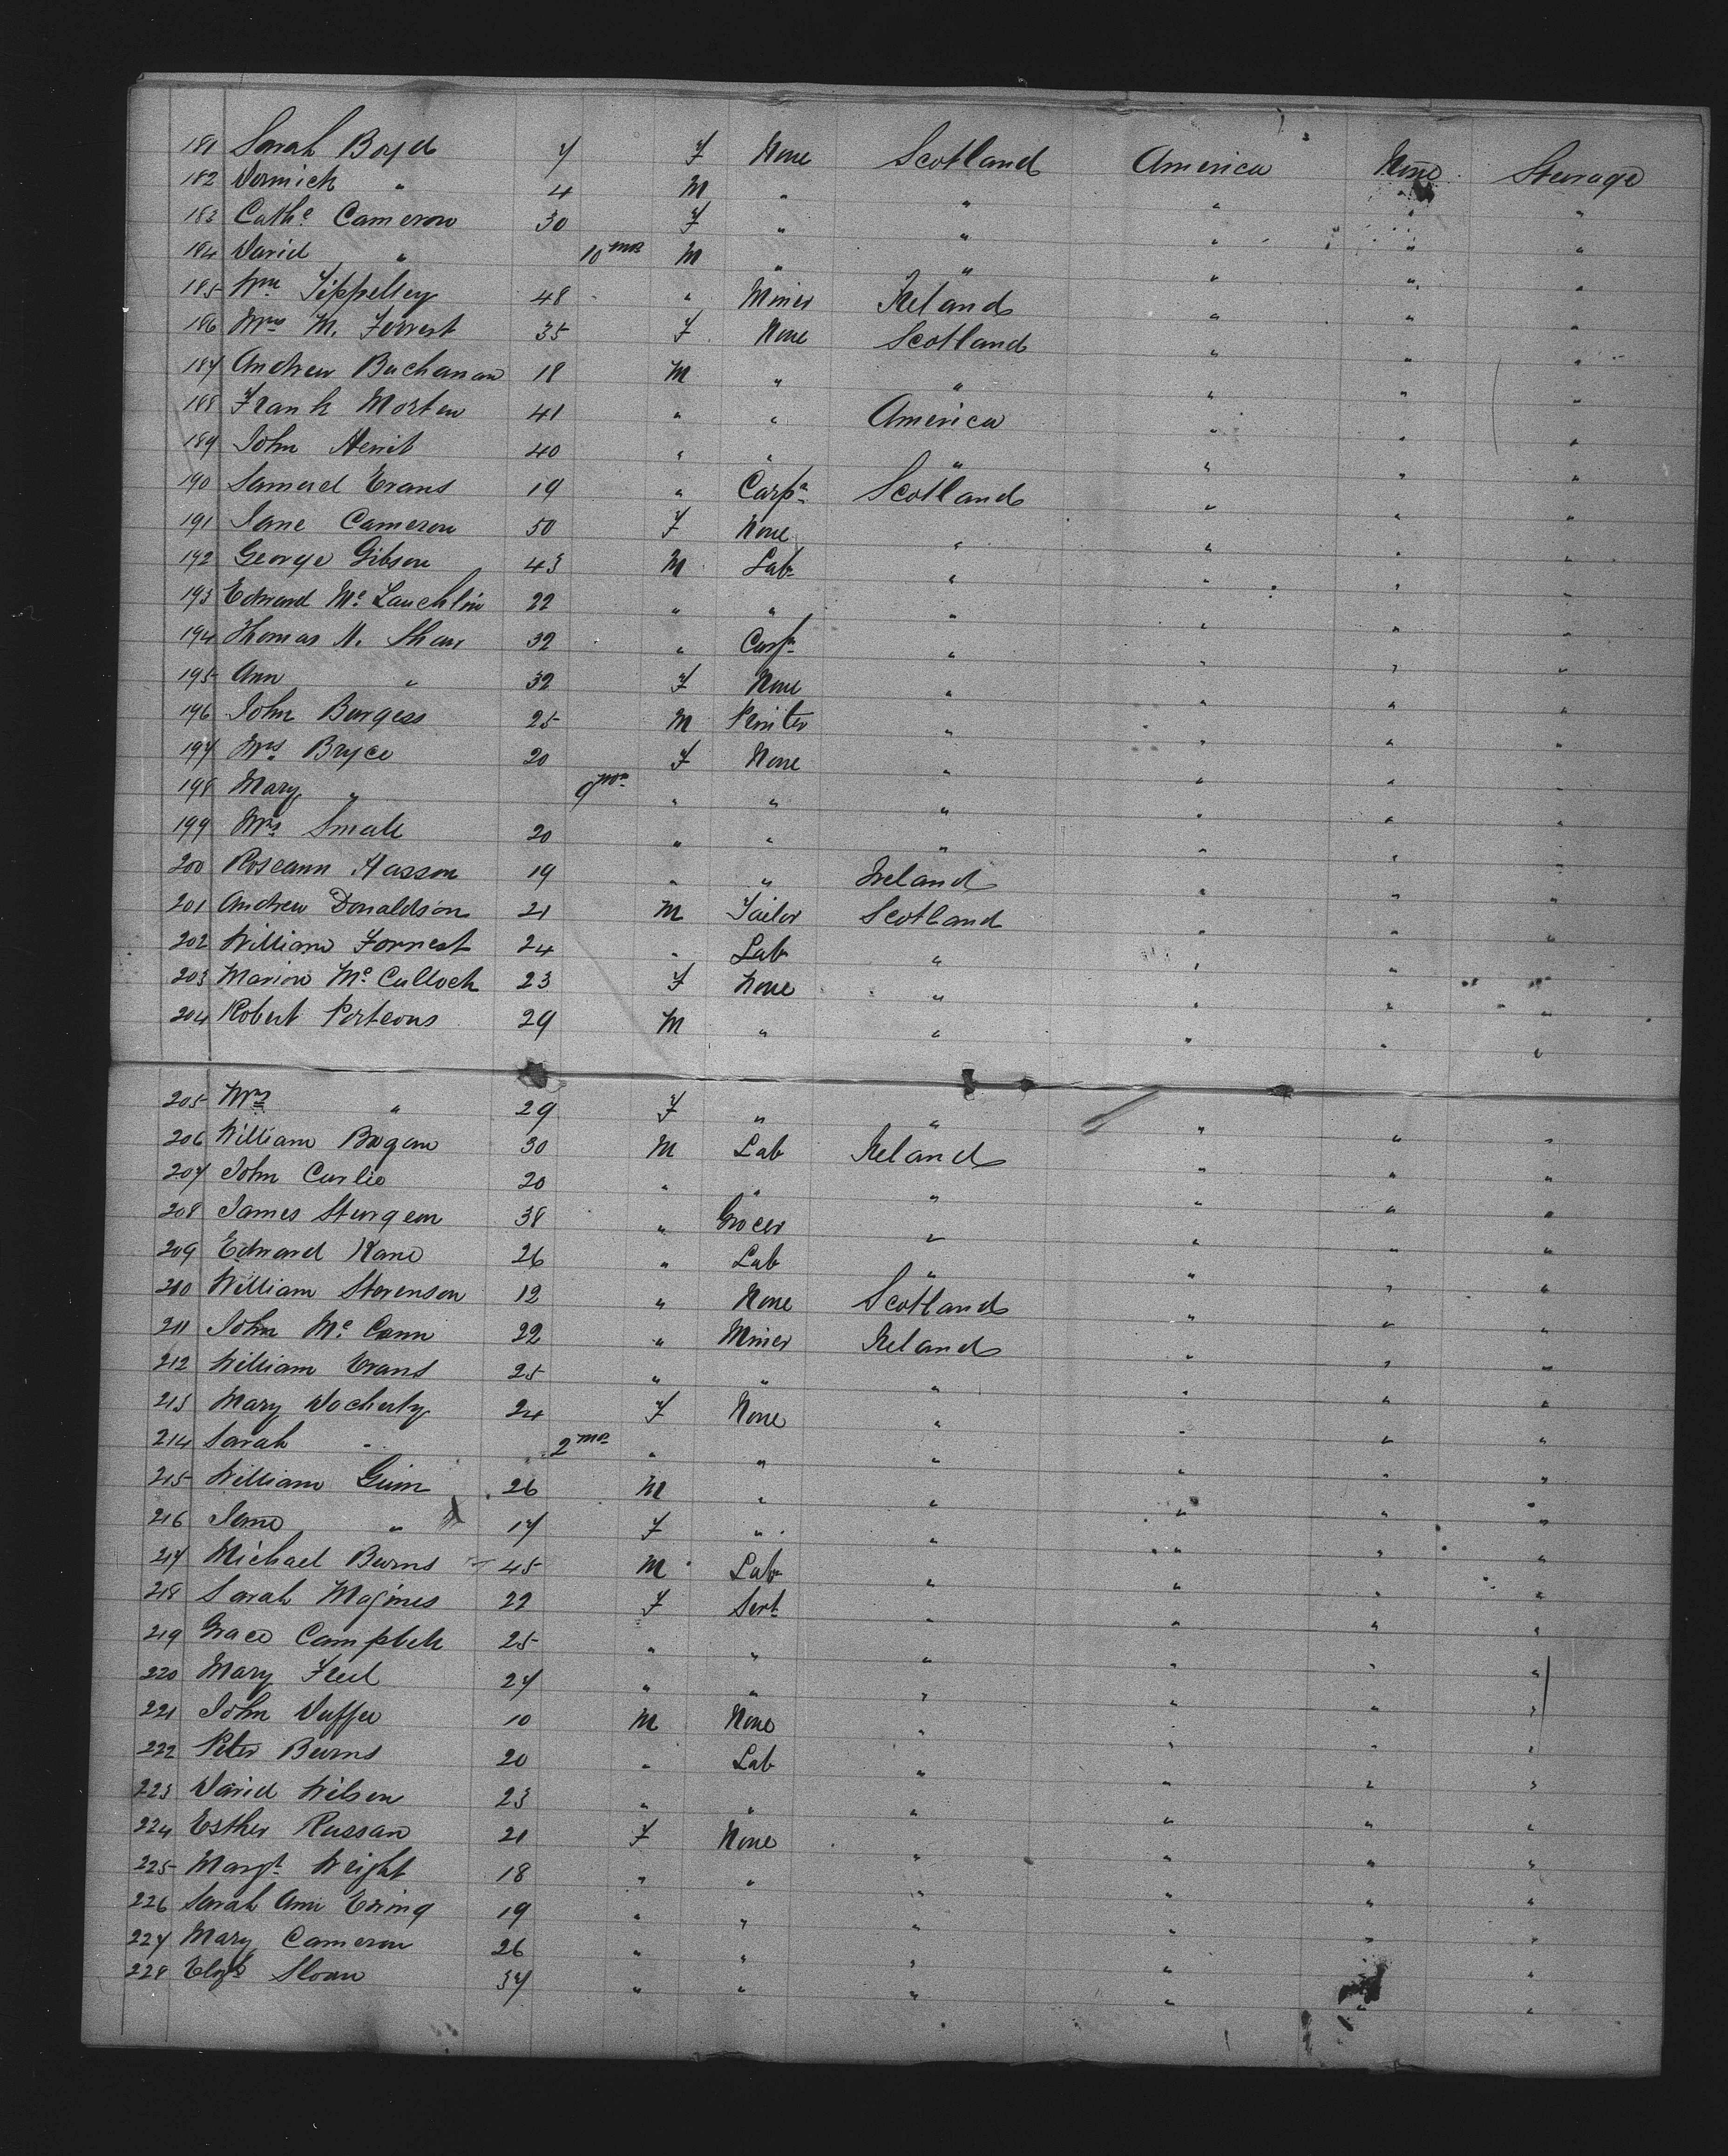 181 Sarah Boyd 7 F None Scotland America None Sterage
182 Dormick " 4 M " " " " "
183 Cathe Cameron 30 F " " " " "
184 David " 10 mos M " " " " "
185 Wm Tippelley 48 " Miner Ireland " " "
186 Mrs M. Forrest 35 F None Scotland " " "
187 Andrew Buchanan 18 M " " " " "
188 Frank Morten 41 " " America " " "
189 John Herrit 40 " " " " " "
190 Samuel Evans 19 " Carpr Scotland " " "
191 Jane Cameron 50 F None " " " "
192 George Gibson 43 M Labr " " " "
193 Edward Mc Lauchlin 22 " " " " " "
194 Thomas N. Shaw 32 " Carpr " " " "
195 Ann " 32 F None " " " "
196 John Burgess 25 M Printer " " " "
197 Mrs Bryce 20 F None " " " "
198 Mary " 9 mos " " " " " "
199 Mrs Small 20 " " " " " "
200 Roseann Hasson 19 " " Ireland " " "
201 Andrew Donaldson 21 M Tailor Scotland " " "
202 William Forrest 24 " Labr " " " "
203 Marion Mc Culloch 23 F None " " " "
204 Robert Porteous 29 M " " " " "
205 Mrs " 29 F " " " " "
206 William Bogan 30 M Lab Ireland " " "
207 John Curlie 20 " " " " " "
208 James Sturgeon 38 " Grocer " " " "
209 Edward Kane 26 " Lab " " " "
210 William Stevenson 12 " None Scotland " " "
211 John Mc Cann 22 " Miner Ireland " " "
212 William Evans 25 " " " " " "
213 Mary Docherty 24 F None " " " "
214 Sarah " 2 mos " " " " " "
215 William Guin 26 M " " " " "
216 Jane " 17 F " " " " "
217 Michael Burns 45 M Labr " " " "
218 Sarah Magines 22 F Servt " " " "
219 Grace Campbell 25 " " " " " "
220 Mary Freel 27 " " " " " "
221 John Duffee 10 M None " " " "
222 Peter Burns 20 " Lab " " " "
223 David Wilson 23 " " " " " "
224 Esther Russan 21 F None " " " "
225 Margt Weight 18 " " " " " "
226 Sarah Ann Ewing 19 " " " " " "
227 Mary Cameron 26 " " " " " "
228 Elizth Sloan 37 " " " " " "